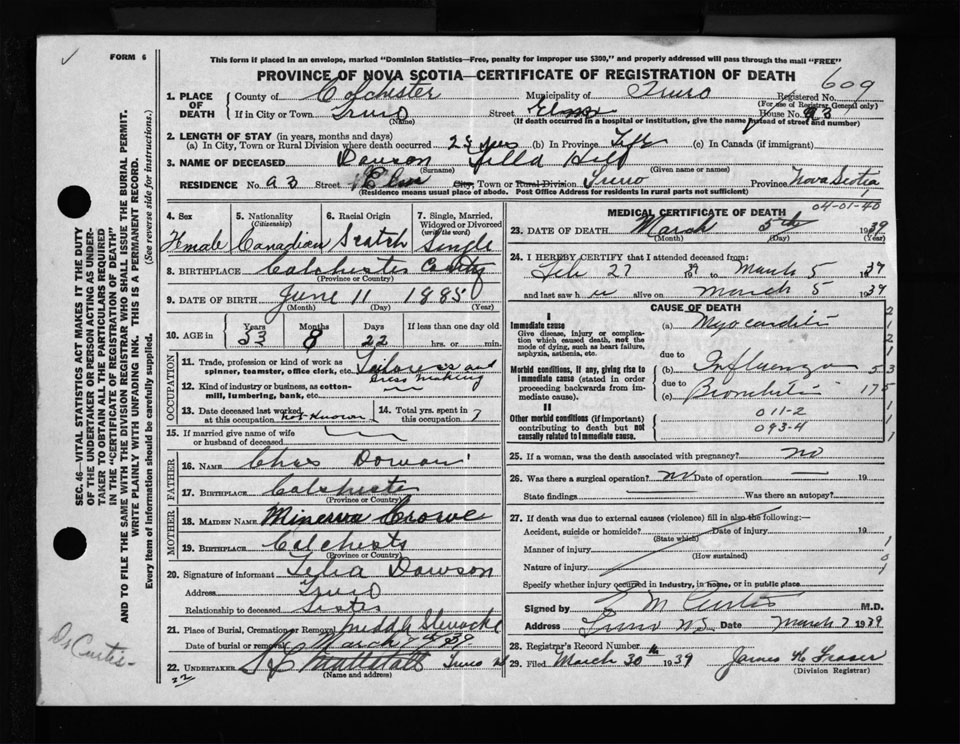 FORM 6
This form if placed in an envelope, marked "Dominion Statistics—Free, penalty for improper use $300," and properly addressed will pass through the mail "FREE"
PROVINCE OF NOVA SCOTIA—CERTIFICATE OF REGISTRATION OF DEATH
609
1. PLACE OF DEATH
County of Colchester Municipality of Truro Registered No.
(For use of Registrar General only)
If in City or Town Truro Street Elm House No. 93
(Name) (If death occurred in a hospital or institution, give the name instead of street and number)
2. LENGTH OF STAY (in years, months and days)
(a) In City, Town or Rural Division where death occurred 25 yrs (b) In Province Life (c) In Canada (if immigrant)
3. NAME OF DECEASED Dawson
(Surname) (Given name or names)
RESIDENCE No. 93 Street Elm City, Town or Rural Division Truro Province Nova Scotia
(Residence means usual place of abode. Post Office Address for residents in rural parts not sufficient)
4. Sex
5. Nationality
(Citizenship)
6. Racial Origin
7. Single, Married, Widowed or Divorced
(write the word)
Female Canadian Scotch Single
8. BIRTHPLACE Colchester County
(Province or Country)
9. DATE OF BIRTH June 11 1885
(Month) (Day) (Year)
10. AGE in
Years Months Days If less than one day old
53 8 22 hrs. or min.
OCCUPATION
11. Trade, profession or kind of work as spinner, teamster, office clerk, etc. and Dress making
12. Kind of industry or business, as cotton-mill, lumbering, bank, etc.
13. Date deceased last worked at this occupation not known
14. Total yrs. spent in this occupation ?
15. If married give name of wife or husband of deceased
FATHER
16. NAME Chas Dowson
17. BIRTHPLACE Colchester
(Province or Country)
MOTHER
18. MAIDEN NAME Minerva Crowe
19. BIRTHPLACE Colchester
(Province or Country)
20. Signature of informant Dawson
Address Truro
Relationship to deceased Sister
21. Place of Burial, Cremation or Removal
Date of burial or removal March 7th 1939
22. UNDERTAKER Truro
(Name and address)
22
MEDICAL CERTIFICATE OF DEATH
04-01-40
23. DATE OF DEATH March 5th 1939
(Month) (Day) (Year)
24. I HEREBY CERTIFY that I attended deceased from:
Feb 27 39 to March 5 1939
and last saw her alive on March 5 1939
CAUSE OF DEATH
I
Immediate cause
Give disease, injury or complication which caused death, not the mode of dying, such as heart failure, asphyxia, asthenia, etc.
(a) Myocarditis
due to
Morbid conditions, if any, giving rise to immediate cause (stated in order proceeding backwards from immediate cause).
(b) Influenza
due to
(c) Bronchitis
II
Other morbid conditions (if important) contributing to death but not causally related to immediate cause.
011-2
093-4
25. If a woman, was the death associated with pregnancy? no
26. Was there a surgical operation? no Date of operation 19
State findings Was there an autopsy?
27. If death was due to external causes (violence) fill in also the following:—
Accident, suicide or homicide? Date of injury 19
(State which)
Manner of injury
(How sustained)
Nature of injury
Specify whether injury occurred in industry, in home, or in public place
Signed by E M Curtis M.D.
Address Truro NS Date March 7 1939
28. Registrar's Record Number
29. Filed March 30 1939 James K Fraser
(Division Registrar)
SEC. 46—VITAL STATISTICS ACT MAKES IT THE DUTY
OF THE UNDERTAKER OR PERSON ACTING AS UNDER-
TAKER TO OBTAIN ALL THE PARTICULARS REQUIRED
IN THE "CERTIFICATE OF REGISTRATION OF DEATH"
AND TO FILE THE SAME WITH THE DIVISION REGISTRAR WHO SHALL ISSUE THE BURIAL PERMIT.
WRITE PLAINLY WITH UNFADING INK. THIS IS A PERMANENT RECORD.
Every item of information should be carefully supplied. (See reverse side for instructions.)
Curtis